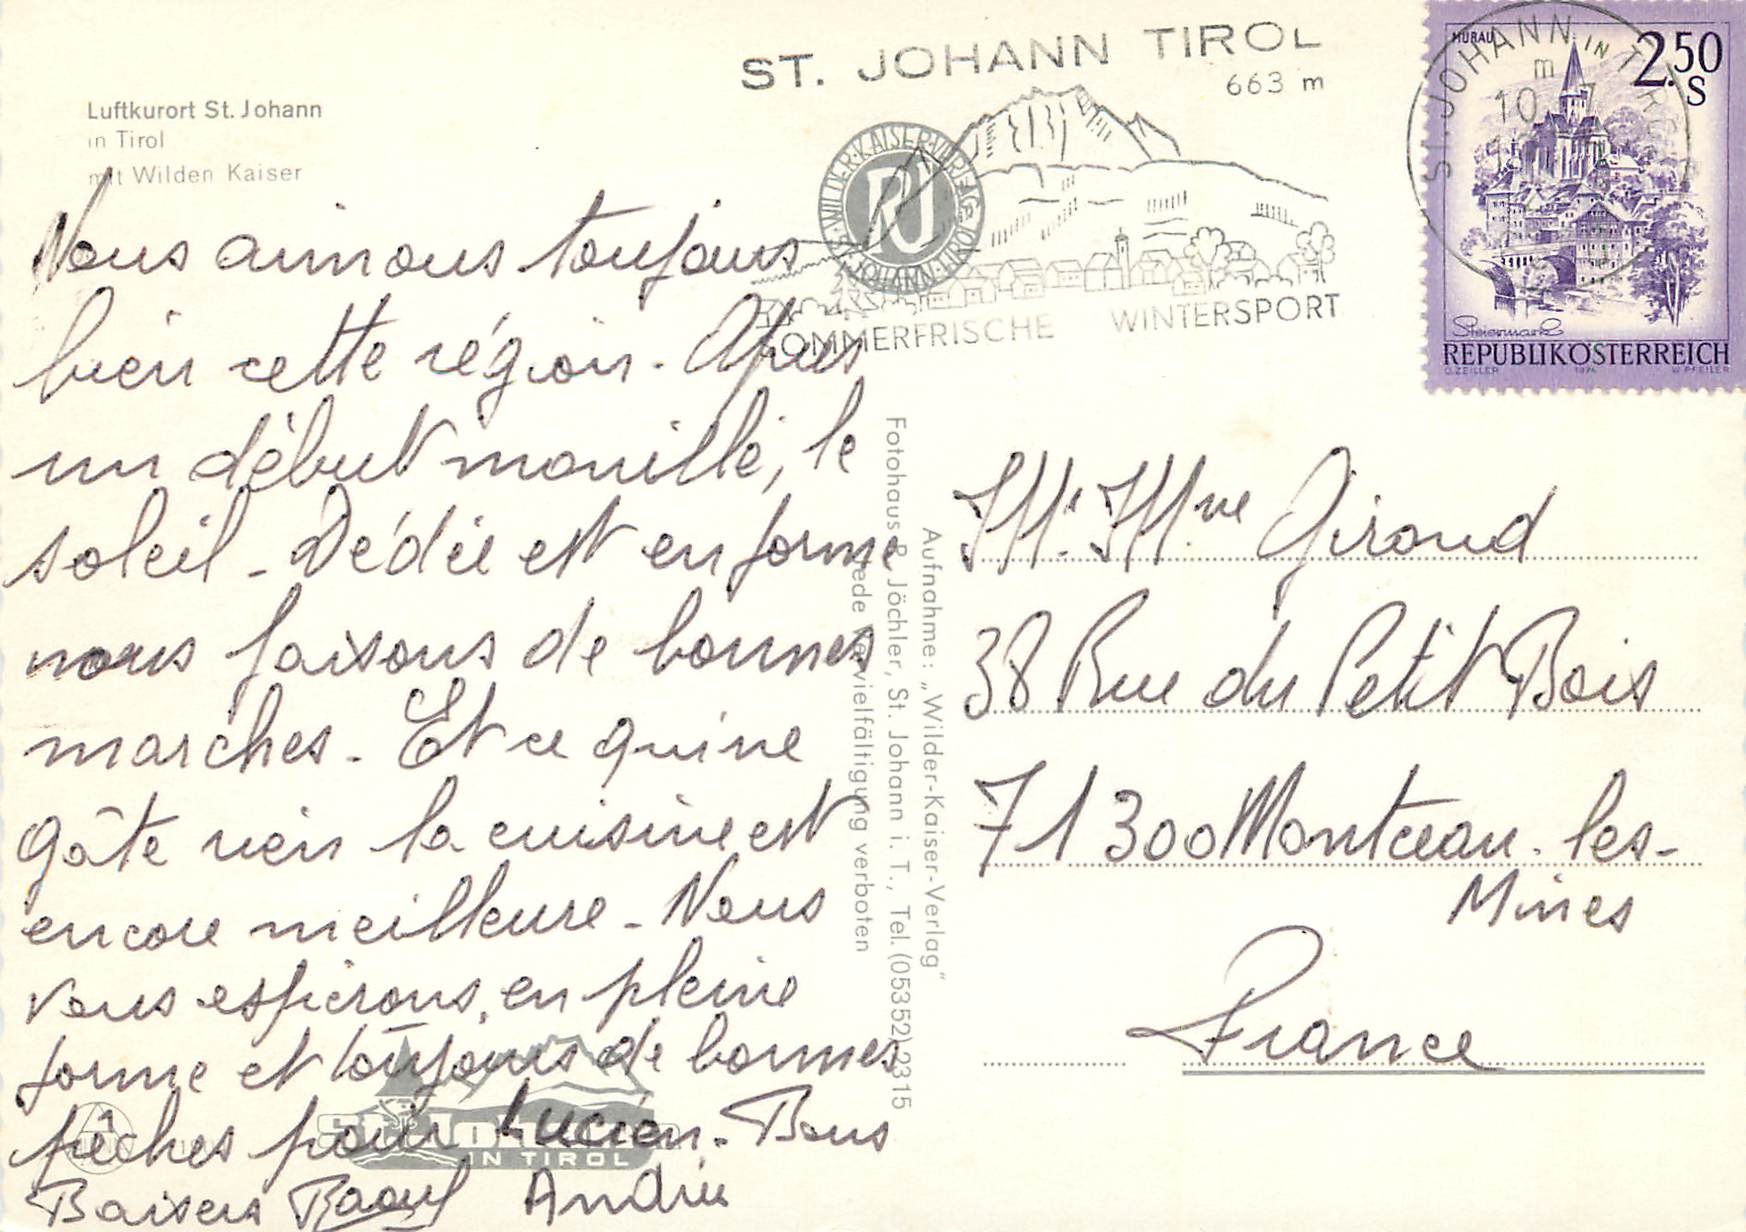 Luftkurort St. Johann
in Tirol
mit Wilden Kaiser
ST. JOHANN TIROL
663 m
WILDER-KAISER-VERLAG
ST. JOHANN-TIROL
RJ
SOMMERFRISCHE WINTERSPORT
ST. JOHANN IN TIROL
10
MURAU
2.50
S
Steiermark
REPUBLIK ÖSTERREICH
O. ZEILLER 1974 W. PFEILER
Nous aimons toujours
bien cette région. Après
un début mouillé, le
soleil - Dédée est en forme
nous faisons de bonnes
marches. Et ce qui ne
gâte rien la cuisine est
encore meilleure - Nous
vous espérons, en pleine
forme et toujours de bonnes
pêches pour Lucien. Bons
Baisers Raoul Andrée
Aufnahme: „Wilder-Kaiser-Verlag"
Fotohaus R. Jöchler, St. Johann i. T., Tel. (05352) 2315
Jede Vervielfältigung verboten
IN TIROL
M. Mme Giroud
38 Rue du Petit Bois
71300 Montceau-les-
Mines
France